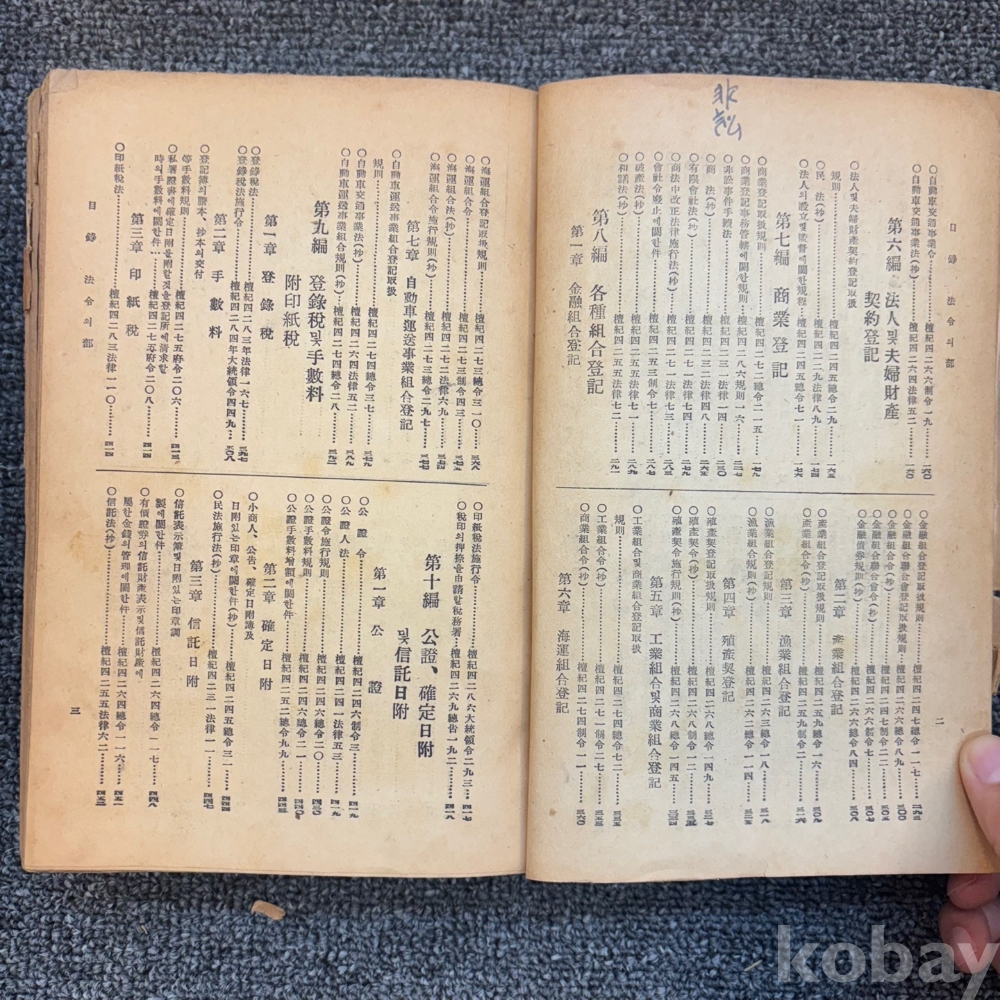 目錄 法令의部
二
○自動車交通事業令………檀紀四二六六制令一九………一六〇
○自動車交通事業法(抄)………檀紀四二六四法律五二………一六〇
第六編 法人및夫婦財產
契約登記
○法人및夫婦財產契約登記取扱
規則………檀紀四二四五總令二九………一六四
○民法(抄)………檀紀四二二九法律八九………一六四
○法人의設立및監督에關한規程………檀紀四二四五總令七一………一七六
第七編 商業登記
○商業登記取扱規則………檀紀四二七二總令二一五………一七九
○商業登記事務管轄에關한規則………檀紀四二八六規則一六………二一七
○非訟事件手續法………檀紀四二三一法律一四
○商法(抄)………檀紀四二三二法律四八
○有限會社法(抄)………檀紀四二七一法律七四
○商法中改正法律施行法(抄)………檀紀四二七一法律七三
○會社令廢止에關한件………檀紀四二五三制令七………二八七
○破產法(抄)………檀紀四二五五法律七一………二八九
○和議法(抄)………檀紀四二五五法律七二………二九一
第八編 各種組合登記
第一章 金融組合登記
○金融組合登記取扱規則………檀紀四二四七總令一一七
○金融組合聯合會登記取扱規則………檀紀四二六六總令八九………三〇〇
○金融組合令(抄)………檀紀四二四七制令二二
○金融組合聯合會令(抄)………檀紀四二六六制令七………三〇七
○金融債券規則(抄)………檀紀四二六六總令八四………三〇八
第二章 產業組合登記
○產業組合登記取扱規則
○產業組合令(抄)………檀紀四二五九制令二
第三章 漁業組合登記
○漁業組合登記取扱規則………檀紀四二六三總令一八………三一八
○漁業組合規則(抄)
第四章 殖產契登記
○殖產契登記取扱規則………檀紀四二六八總令一四九………三一七
○殖產契令(抄)………檀紀四二六八制令一二
○殖產契令施行規則(抄)………檀紀四二六八總令一四五
第五章 工業組合및商業組合登記
○工業組合및商業組合登記取扱
規則………檀紀四二七四總令一七二
○工業組合令(抄)………檀紀四二七一制令二七
○商業組合令(抄)………檀紀四二七四制令一一………三六〇
第六章 海運組合登記
目錄 法令의部
三
○海運組合登記取扱規則………檀紀四二七三總令三一〇………三六八
○海運組合令………檀紀四二七三制令四三
○海運組合法(抄)………檀紀四二七二法律六九
○海運組合令施行規則(抄)………檀紀四二七三總令二九七
第七章 自動車運送事業組合登記
○自動車運送事業組合登記取扱
規則………檀紀四二七四總令三七………三七九
○自動車交通事業法(抄)………檀紀四二六四法律五二………三八九
○自動車運送事業組合規則(抄)………檀紀四二七四總令二八
第九編 登錄稅및手數料
附印紙稅
第一章 登錄稅
○登錄稅法………檀紀四二八三年法律一六七………三九七
○登錄稅法施行令………檀紀四二八四年大統領令四四九………四〇八
第二章 手數料
○登記簿의謄本、抄本의交付
等手數料規則………檀紀四二七五府令二〇六
○私署證書에確定日附를附할것을登記所에請求할
時의手數料에關한件………檀紀四二七五府令二〇八………四一四
第三章 印紙稅
○印紙稅法………檀紀四二八三法律一一〇………四一四
○印紙稅法施行令………檀紀四二八六大統領令二九三………四一七
○稅印의押捺을申請할稅務署………檀紀四二六九總告一九二………四一八
第十編 公證、確定日附
및信託日附
第一章 公證
○公證令………檀紀四二四六制令三………四一九
○公證人法………檀紀四二四一法律五三………四一九
○公證令施行規則………檀紀四二四六總令二〇………四三〇
○公證手數料規則………檀紀四二四六總令二一………四四〇
○公證手數料增額에關한件………檀紀四二五二總令九九
第二章 確定日附
○小商人、公告、確定日附簿及
日附있는印章에關한件(抄)………檀紀四二四五總令三一
○民法施行法(抄)………檀紀四二三一法律一一………四四七
第三章 信託日附
○信託表示簿및日附있는印章調
製에關한件………檀紀四二六四總令一一七………四四八
○有價證券의信託財產表示및信託財產에
屬한金錢의管理에關한件………檀紀四二六四總令一一六………四五一
○信託法(抄)………檀紀四二五五法律六二
kobay